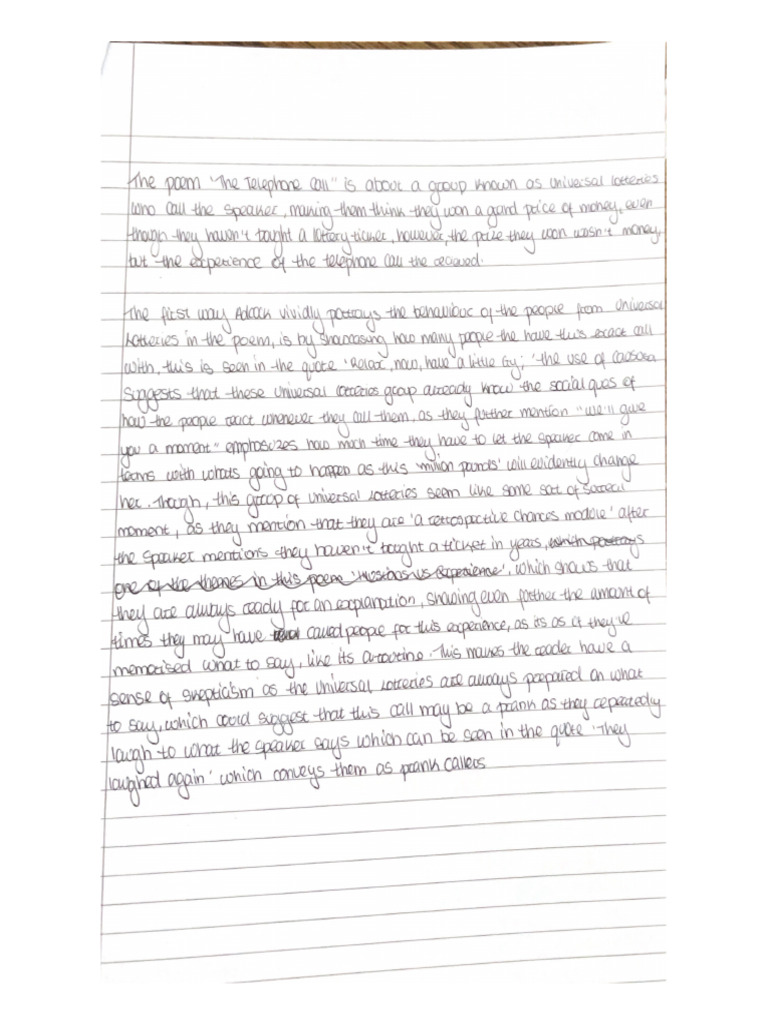 The poem "The Telephone Call" is about a group known as Universal Lotteries
who call the speaker, making them think they won a grand price of money, even
though they haven't bought a lottery ticket, however, the prize they won wasn't money,
but the experience of the telephone call the recieved.
The first way Adcock vividly portrays the behaviour of the people from Universal
Lotteries in the poem, is by showcasing how many people the have this exact call
with, this is seen in the quote 'Relax, now, have a little cry;' the use of
suggests that these Universal Lotteries group already know the social ques of
how the people react whenever they call them, as they further mention "We'll give
you a moment" emphasizes how much time they have to let the speaker come in
terms with whats going to happen as this 'million pounds' will evidently change
her. Though, this group of Universal Lotteries seem like some sort of
moment, as they mention that they are 'a retrospective chances module' after
the speaker mentions they haven't bought a ticket in years, which portrays
one of the themes in this poem 'Illusions vs Experience', which shows that
they are always ready for an explanation, showing even further the amount of
times they may have called people for this experience, as its as if they've
memorised what to say, like its a routine. This makes the reader have a
sense of skepticism as the Universal Lotteries are always prepared on what
to say, which could suggest that this call may be a prank as they repeatedly
laugh to what the speaker says which can be seen in the quote 'They
laughed again' which conveys them as prank callers